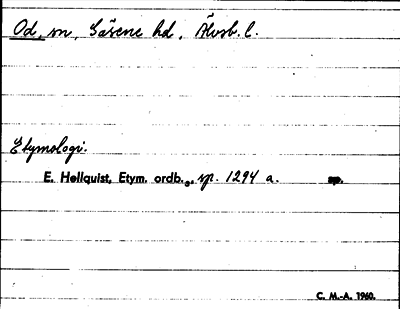 Od, sn, Gäsene hd, Älvsb. l.
Etymologi.
E. Hellquist, Etym. ordb., sp. 1294 a.
C. M.-A. 1960.